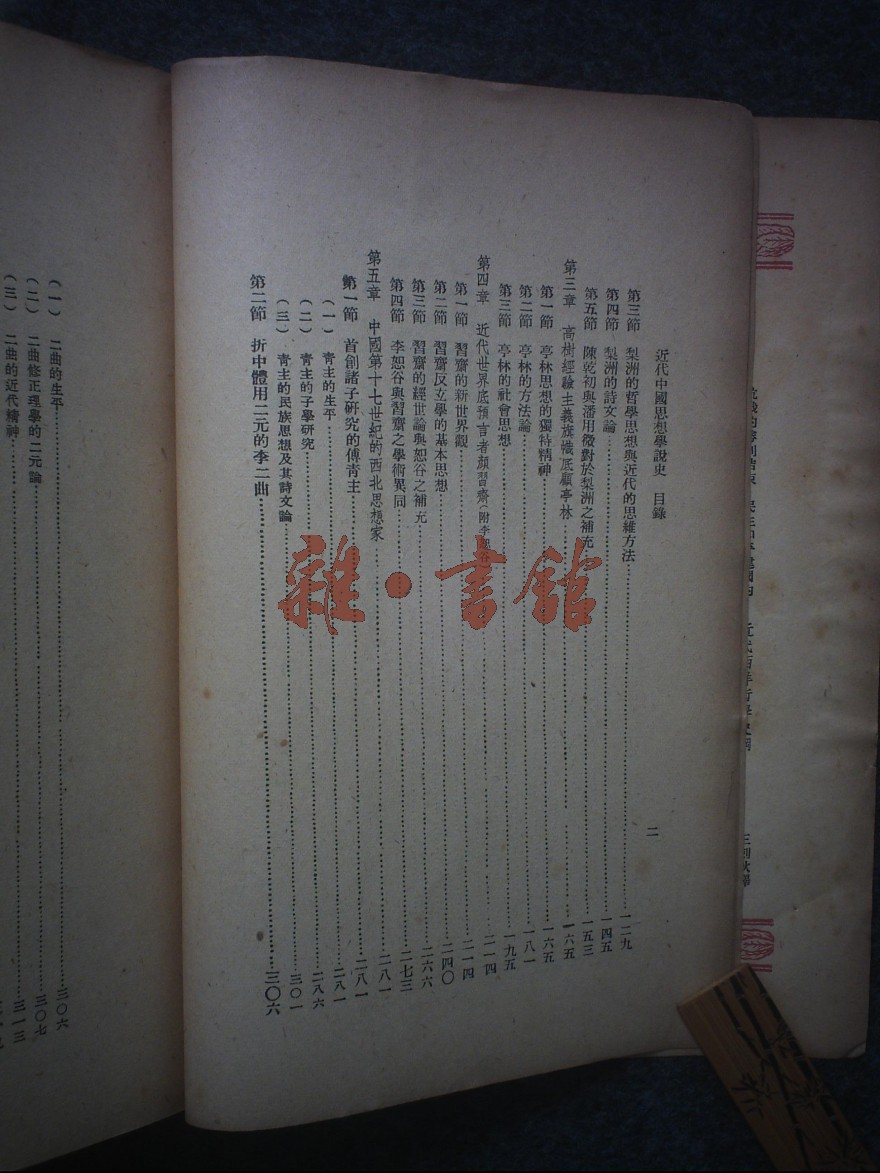 近代中國思想學說史 目錄
二
第三節 梨洲的哲學思想與近代的思維方法……一二九
第四節 梨洲的詩文論……一四五
第五節 陳乾初與潘用微對於梨洲之補充……一五三
第三章 高樹經驗主義旗幟底顧亭林……一六五
第一節 亭林思想的獨特精神……一六五
第二節 亭林的方法論……一八一
第三節 亭林的社會思想……一九五
第四章 近代世界底預言者顏習齋(附李恕谷)……二一四
第一節 習齋的新世界觀……二一四
第二節 習齋反玄學的基本思想……二四〇
第三節 習齋的經世論與恕谷之補充……二六六
第四節 李恕谷與習齋之學術異同……二七三
第五章 中國第十七世紀的西北思想家……二八一
第一節 首創諸子研究的傅青主……二八一
(一) 青主的生平……二八一
(二) 青主的子學研究……二八六
(三) 青主的民族思想及其詩文論……三〇一
第二節 折中體用二元的李二曲……三〇六
(一) 二曲的生平……三〇六
(二) 二曲修正理學的二元論……三〇七
(三) 二曲的近代精神……三一三
雜·書館